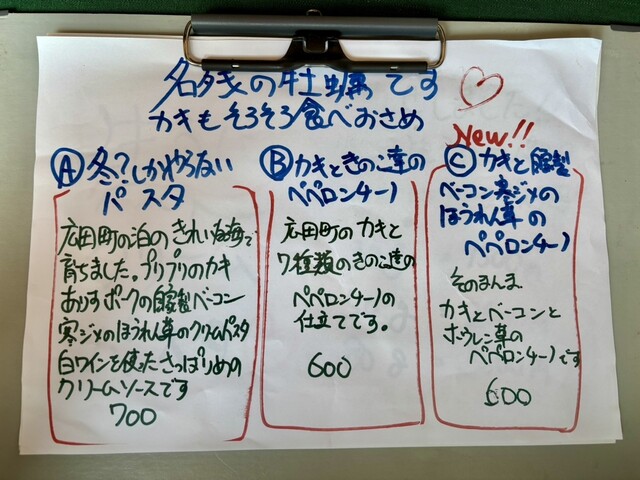 名残の牡蠣です♡
カキもそろそろ食べおさめ
New!!
Ⓐ冬?しかやらない
パスタ
広田町の泊のきれいな海で
育ちました。プリプリのカキ
ありすポークの自家製ベーコン
寒ジメのほうれん草のクリームパスタ
白ワインを使ったさっぱりめの
クリームソースです
700
Ⓑカキときのこ達の
ペペロンチーノ
広田町のカキと
7種類のきのこ達の
ペペロンチーノの
仕立てです。
600
Ⓒカキと自家製
ベーコン寒ジメの
ほうれん草の
ペペロンチーノ
そのまんま
カキとベーコンと
ホウレン草の
ペペロンチーノです
600